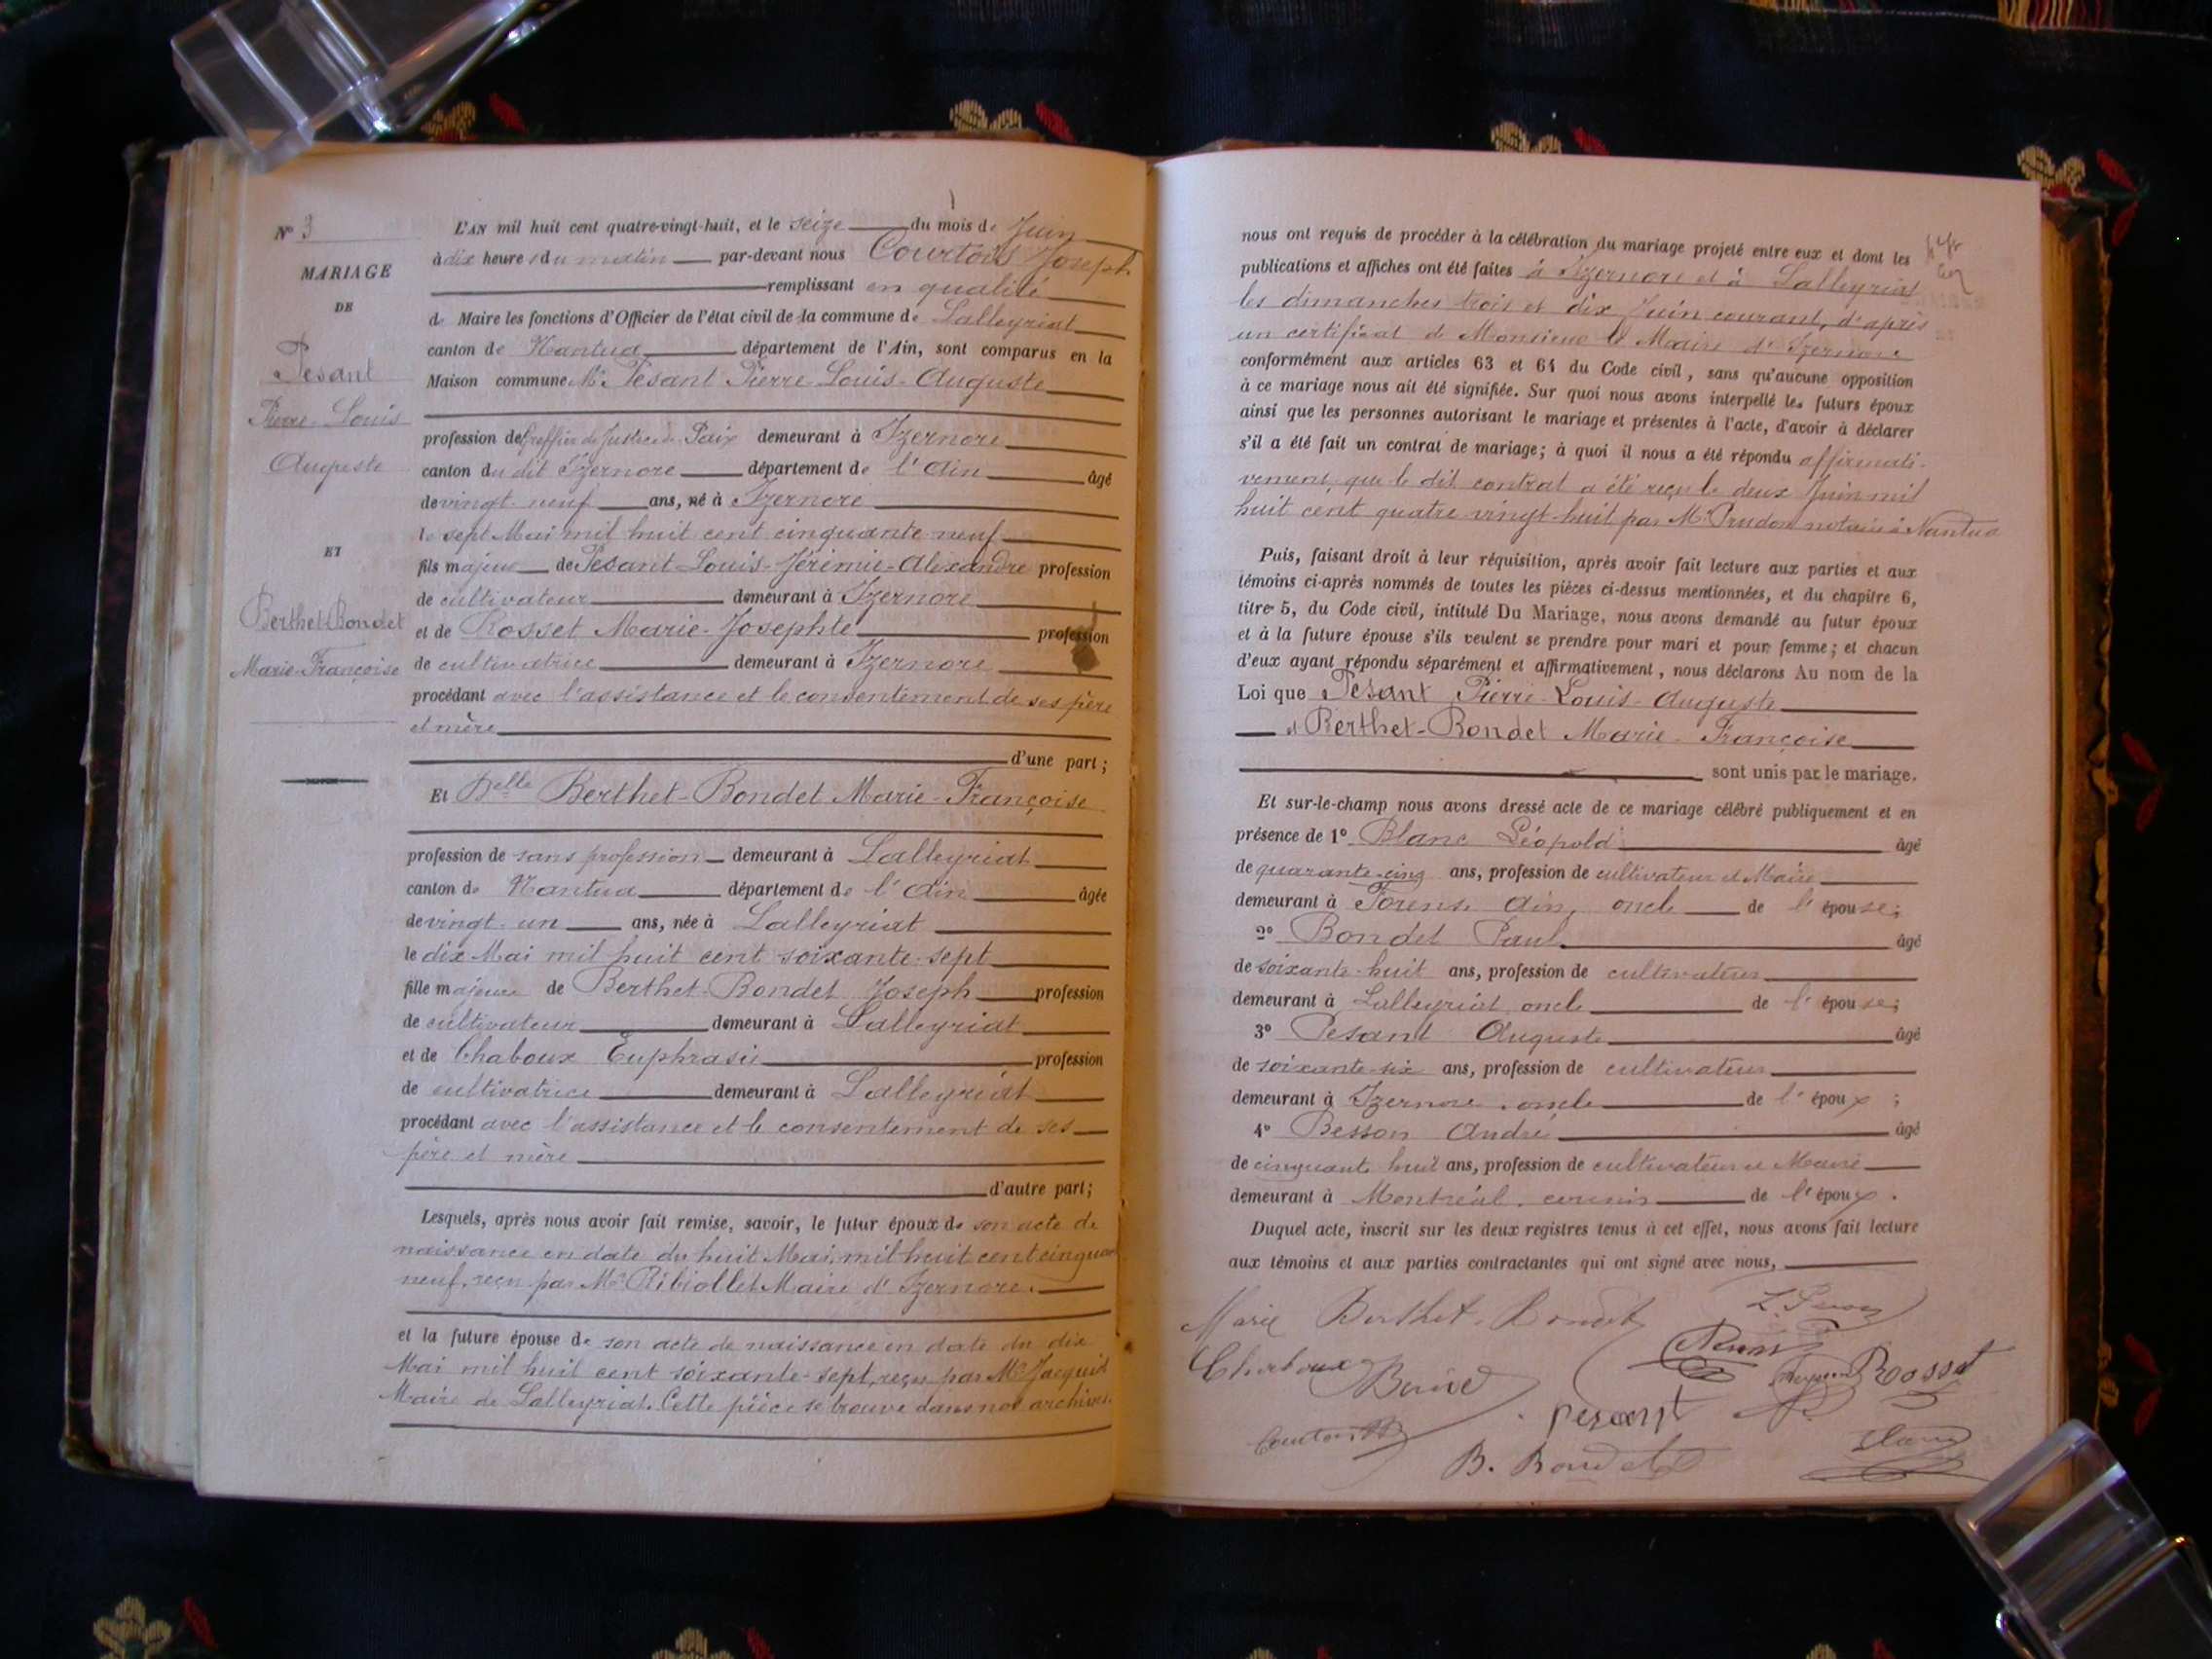 N° 3
MARIAGE
DE
Pesant
Pierre-Louis
Auguste
ET
Berthet-Bondet
Marie-Françoise
L'AN mil huit cent quatre-vingt-huit, et le seize du mois de Juin
à dix heures du matin par-devant nous Courtois Joseph
remplissant en qualité
de Maire les fonctions d'Officier de l'état civil de la commune de Lalleyriat
canton de Nantua département de l'Ain, sont comparus en la
Maison commune Mr Pesant Pierre-Louis-Auguste
profession de Greffier de Justice de Paix demeurant à Izernore
canton du dit Izernore département de l'Ain âgé
de vingt-neuf ans, né à Izernore
le sept Mai mil huit cent cinquante-neuf
fils majeur de Pesant Louis-Jérémie-Alexandre profession
de cultivateur demeurant à Izernore
et de Rosset Marie-Josephte profession
de cultivatrice demeurant à Izernore
procédant avec l'assistance et le consentement de ses père
et mère
d'une part;
Et Delle Berthet-Bondet Marie-Françoise
profession de sans profession demeurant à Lalleyriat
canton de Nantua département de l'Ain âgée
de vingt-un ans, née à Lalleyriat
le dix Mai mil huit cent soixante-sept
fille majeure de Berthet-Bondet Joseph profession
de cultivateur demeurant à Lalleyriat
et de Chaboux Euphrasie profession
de cultivatrice demeurant à Lalleyriat
procédant avec l'assistance et le consentement de ses
père et mère
d'autre part;
Lesquels, après nous avoir fait remise, savoir, le futur époux de son acte de
naissance en date du huit Mai mil huit cent cinquante
neuf, reçu par Mr Ribiollet Maire d'Izernore.
et la future épouse de son acte de naissance en date du dix
Mai mil huit cent soixante-sept, reçu par Mr Jacquid
Maire de Lalleyriat. Cette pièce se trouve dans nos archives.
nous ont requis de procéder à la célébration du mariage projeté entre eux et dont les
publications et affiches ont été faites à Izernore et à Lalleyriat
les dimanches trois et dix Juin courant, d'après
un certificat de Monsieur le Maire d'Izernore
conformément aux articles 63 et 64 du Code civil, sans qu'aucune opposition
à ce mariage nous ait été signifiée. Sur quoi nous avons interpellé les futurs époux
ainsi que les personnes autorisant le mariage et présentes à l'acte, d'avoir à déclarer
s'il a été fait un contrat de mariage; à quoi il nous a été répondu affirmati-
vement, que le dit contrat a été reçu le deux Juin mil
huit cent quatre-vingt-huit par Mr Prudon notaire à Nantua
Puis, faisant droit à leur réquisition, après avoir fait lecture aux parties et aux
témoins ci-après nommés de toutes les pièces ci-dessus mentionnées, et du chapitre 6,
titre 5, du Code civil, intitulé Du Mariage, nous avons demandé au futur époux
et à la future épouse s'ils veulent se prendre pour mari et pour femme; et chacun
d'eux ayant répondu séparément et affirmativement, nous déclarons Au nom de la
Loi que Pesant Pierre-Louis-Auguste
et Berthet-Bondet Marie-Françoise
sont unis par le mariage.
Et sur-le-champ nous avons dressé acte de ce mariage célébré publiquement et en
présence de 1° Blanc Léopold âgé
de quarante-cinq ans, profession de cultivateur et Maire
demeurant à Forens Ain, oncle de l'épouse;
2° Bondet Paul âgé
de soixante-huit ans, profession de cultivateur
demeurant à Lalleyriat oncle de l'épouse;
3° Pesant Auguste âgé
de soixante-six ans, profession de cultivateur
demeurant à Izernore, oncle de l'époux;
4° Besson André âgé
de cinquante huit ans, profession de cultivateur et Maire
demeurant à Montréal, cousin de l'époux.
Duquel acte, inscrit sur les deux registres tenus à cet effet, nous avons fait lecture
aux témoins et aux parties contractantes qui ont signé avec nous,
Marie Berthet-Bondet
Chaboux
Rosset
pesant
Courtois
B. Bondet